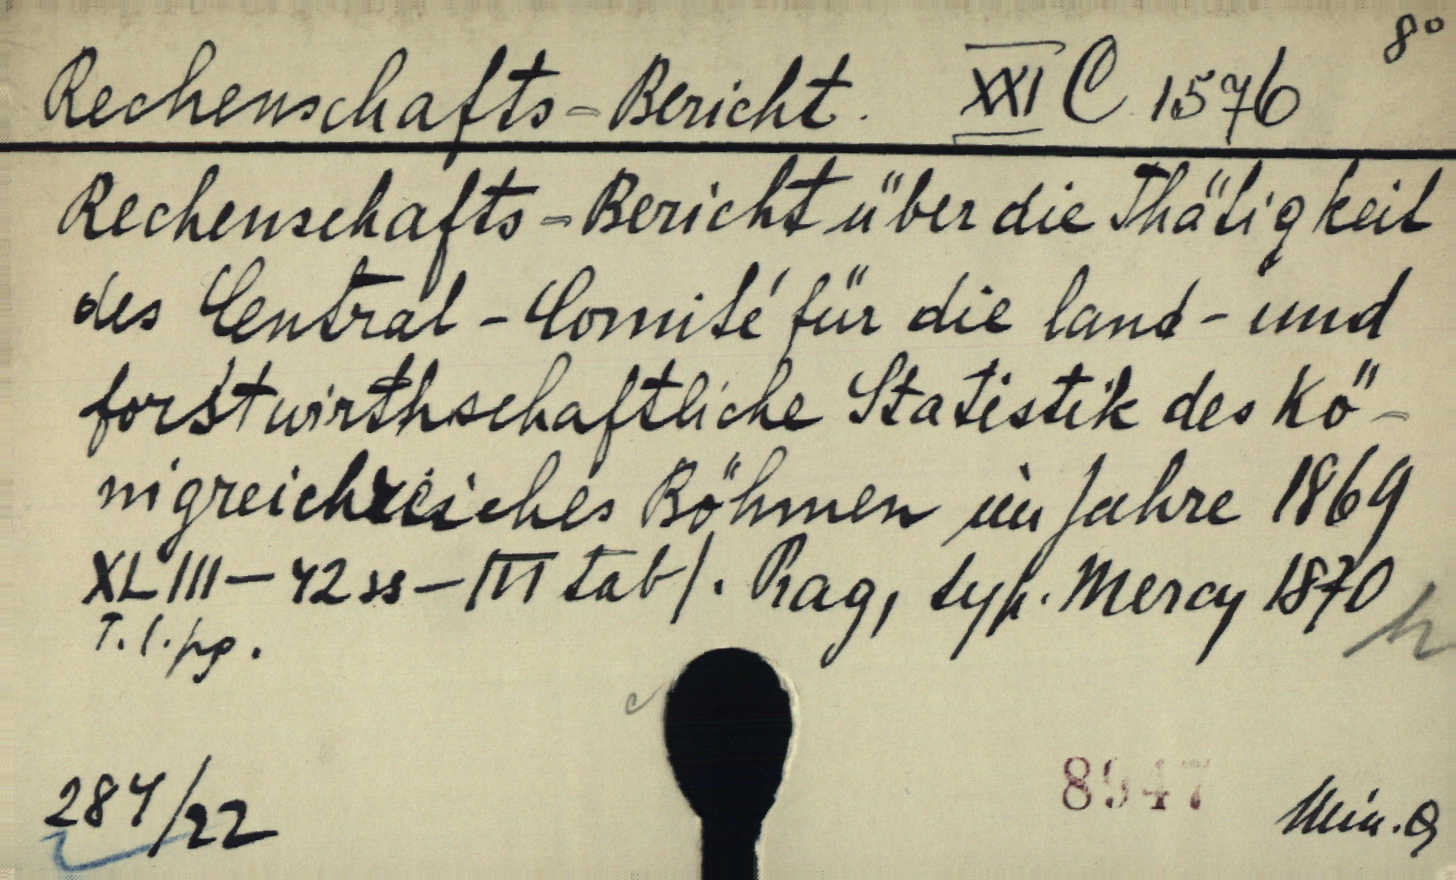 8°
Rechenschafts-Bericht. XXI C 1576
Rechenschafts-Bericht über die Thätigkeit
des Central-Comité für die land- und
forstwirthschaftliche Statistik des Kö-
nigreichreiches Böhmen im Jahre 1869
XLIII-42 ss-/III tab/. Prag, typ. Mercy 1870
T. l. pp.
284/22
8947
Min. Q